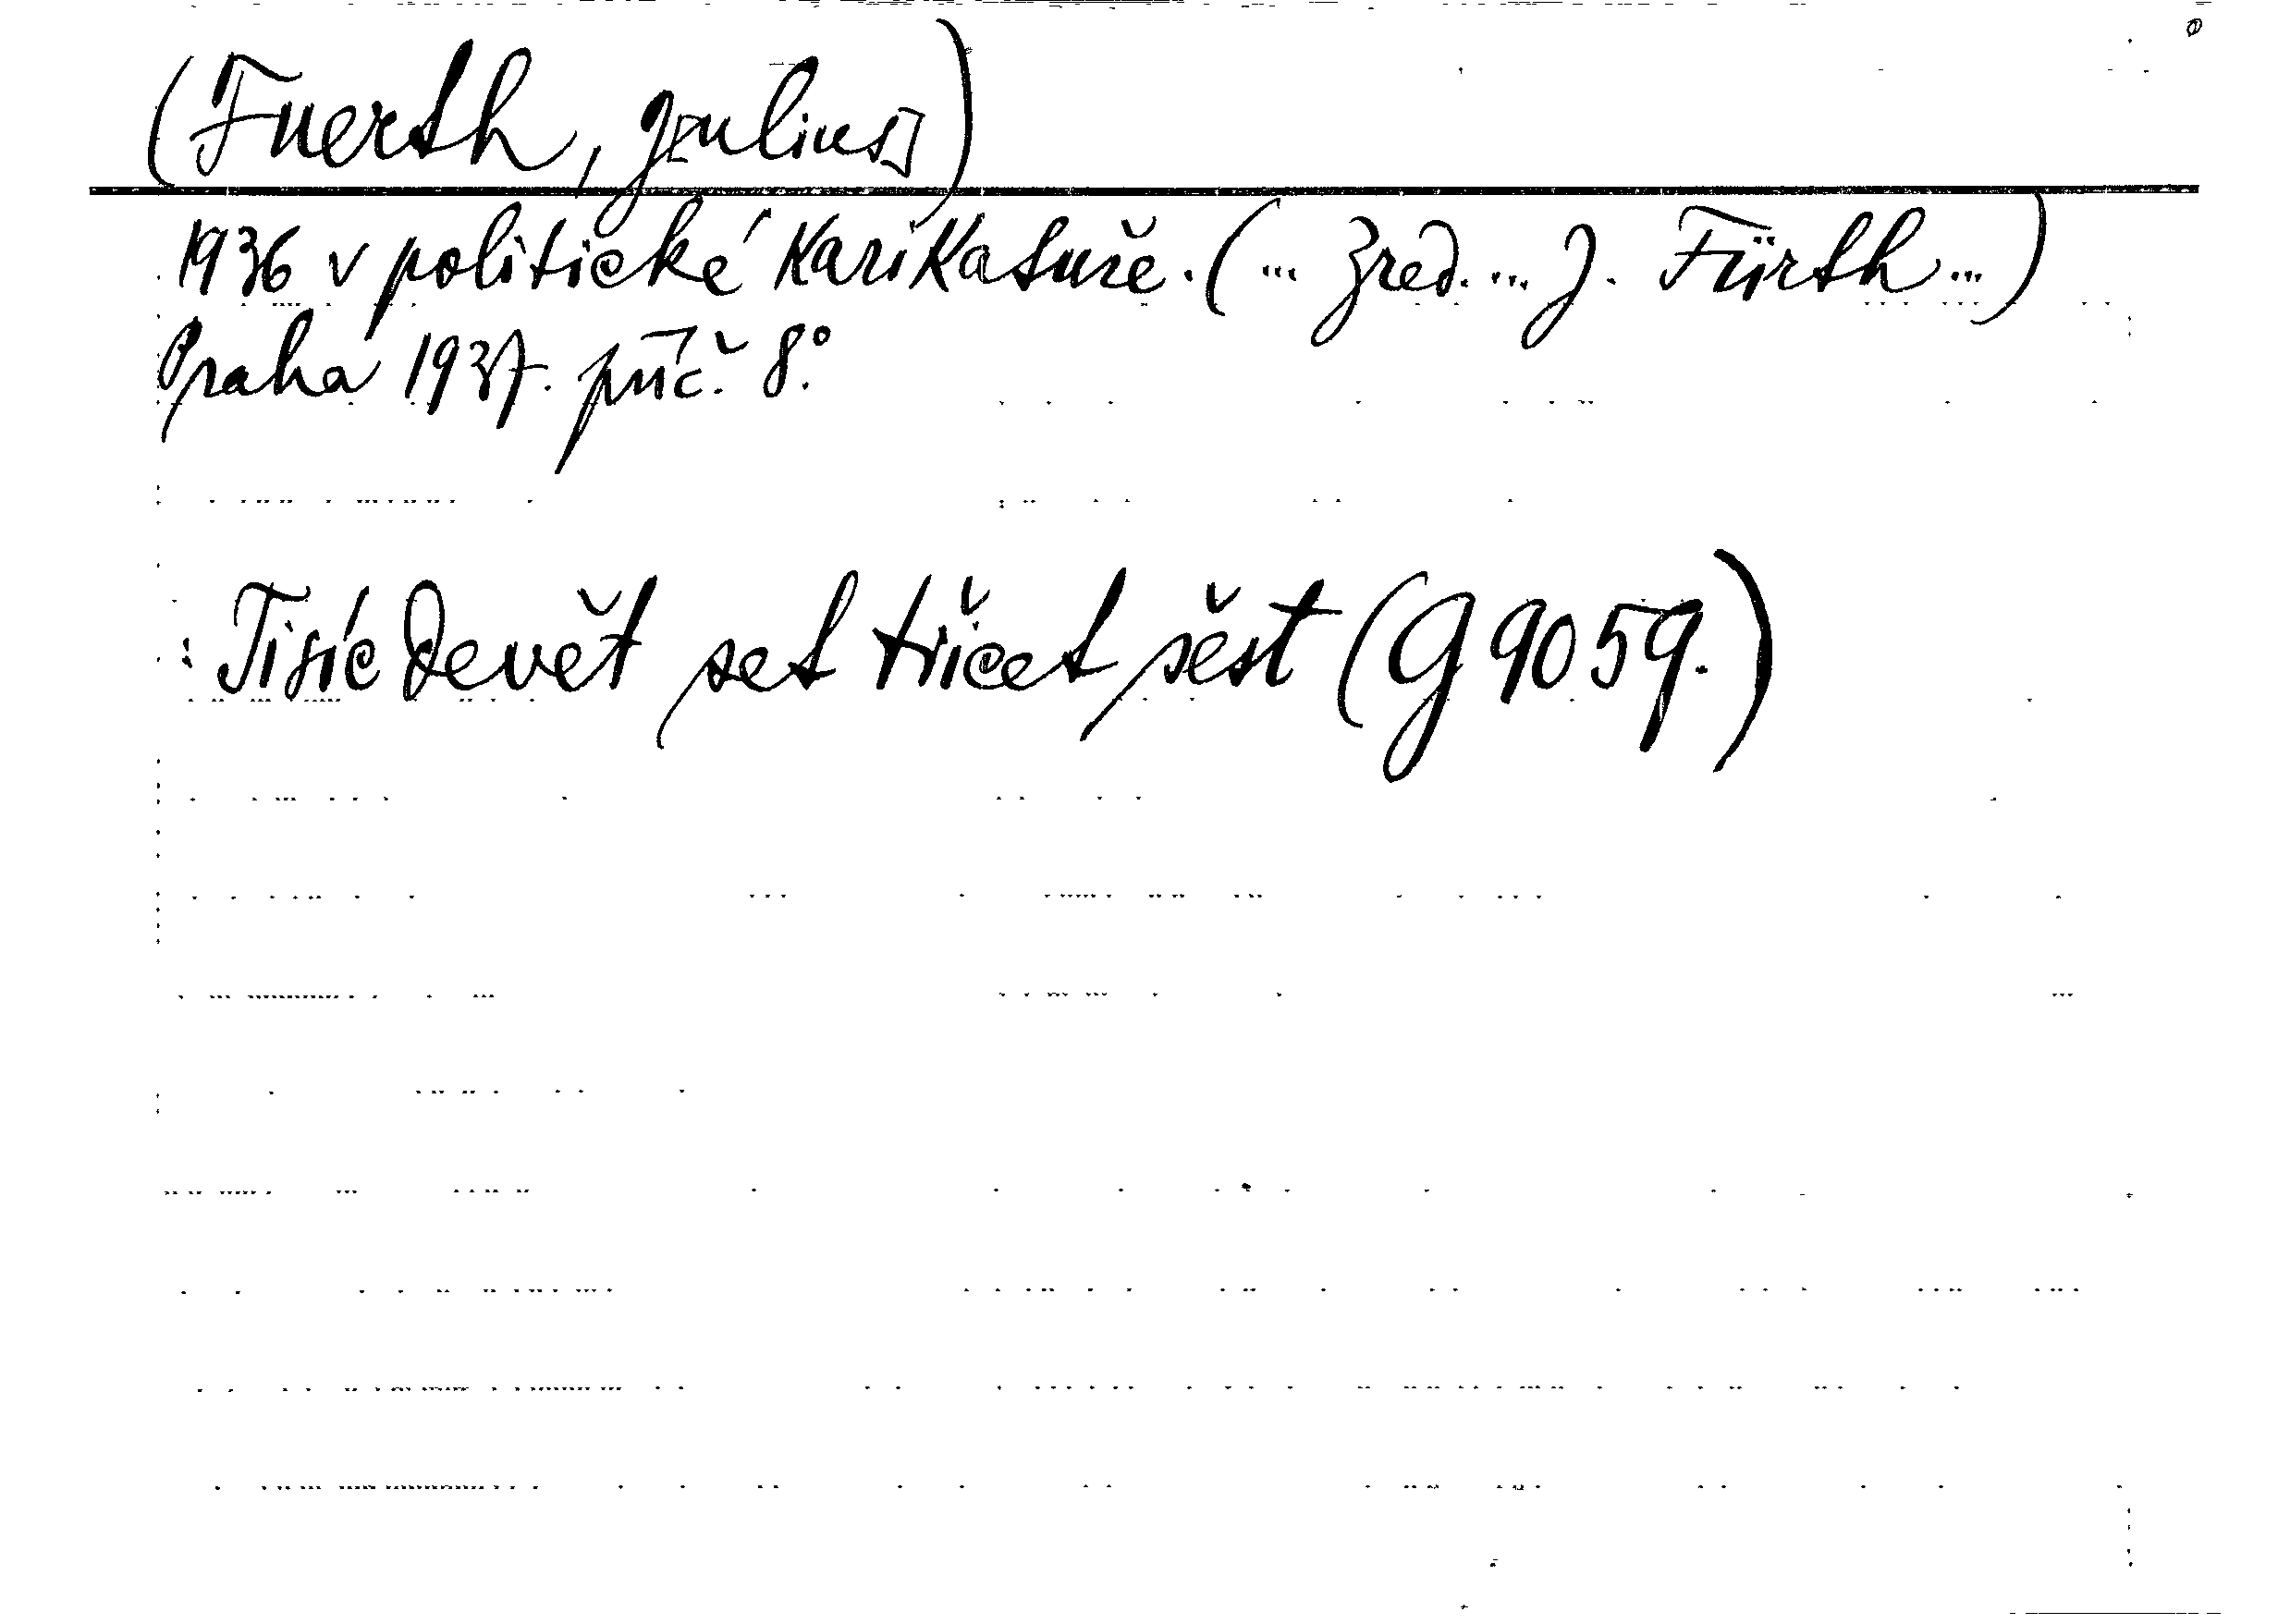 (Fuerth, J[ulius])
1936 v politické karikatuře. (... Zred. ... J. Fürth ...)
Praha 1937. půč. 8°.
: Tisíc devět set třicet šest (G 9059.)